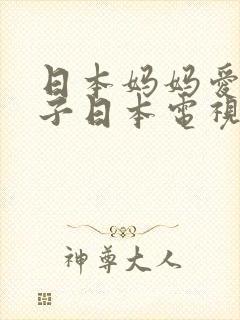 日本妈妈爱
子日本电视
神尊大人